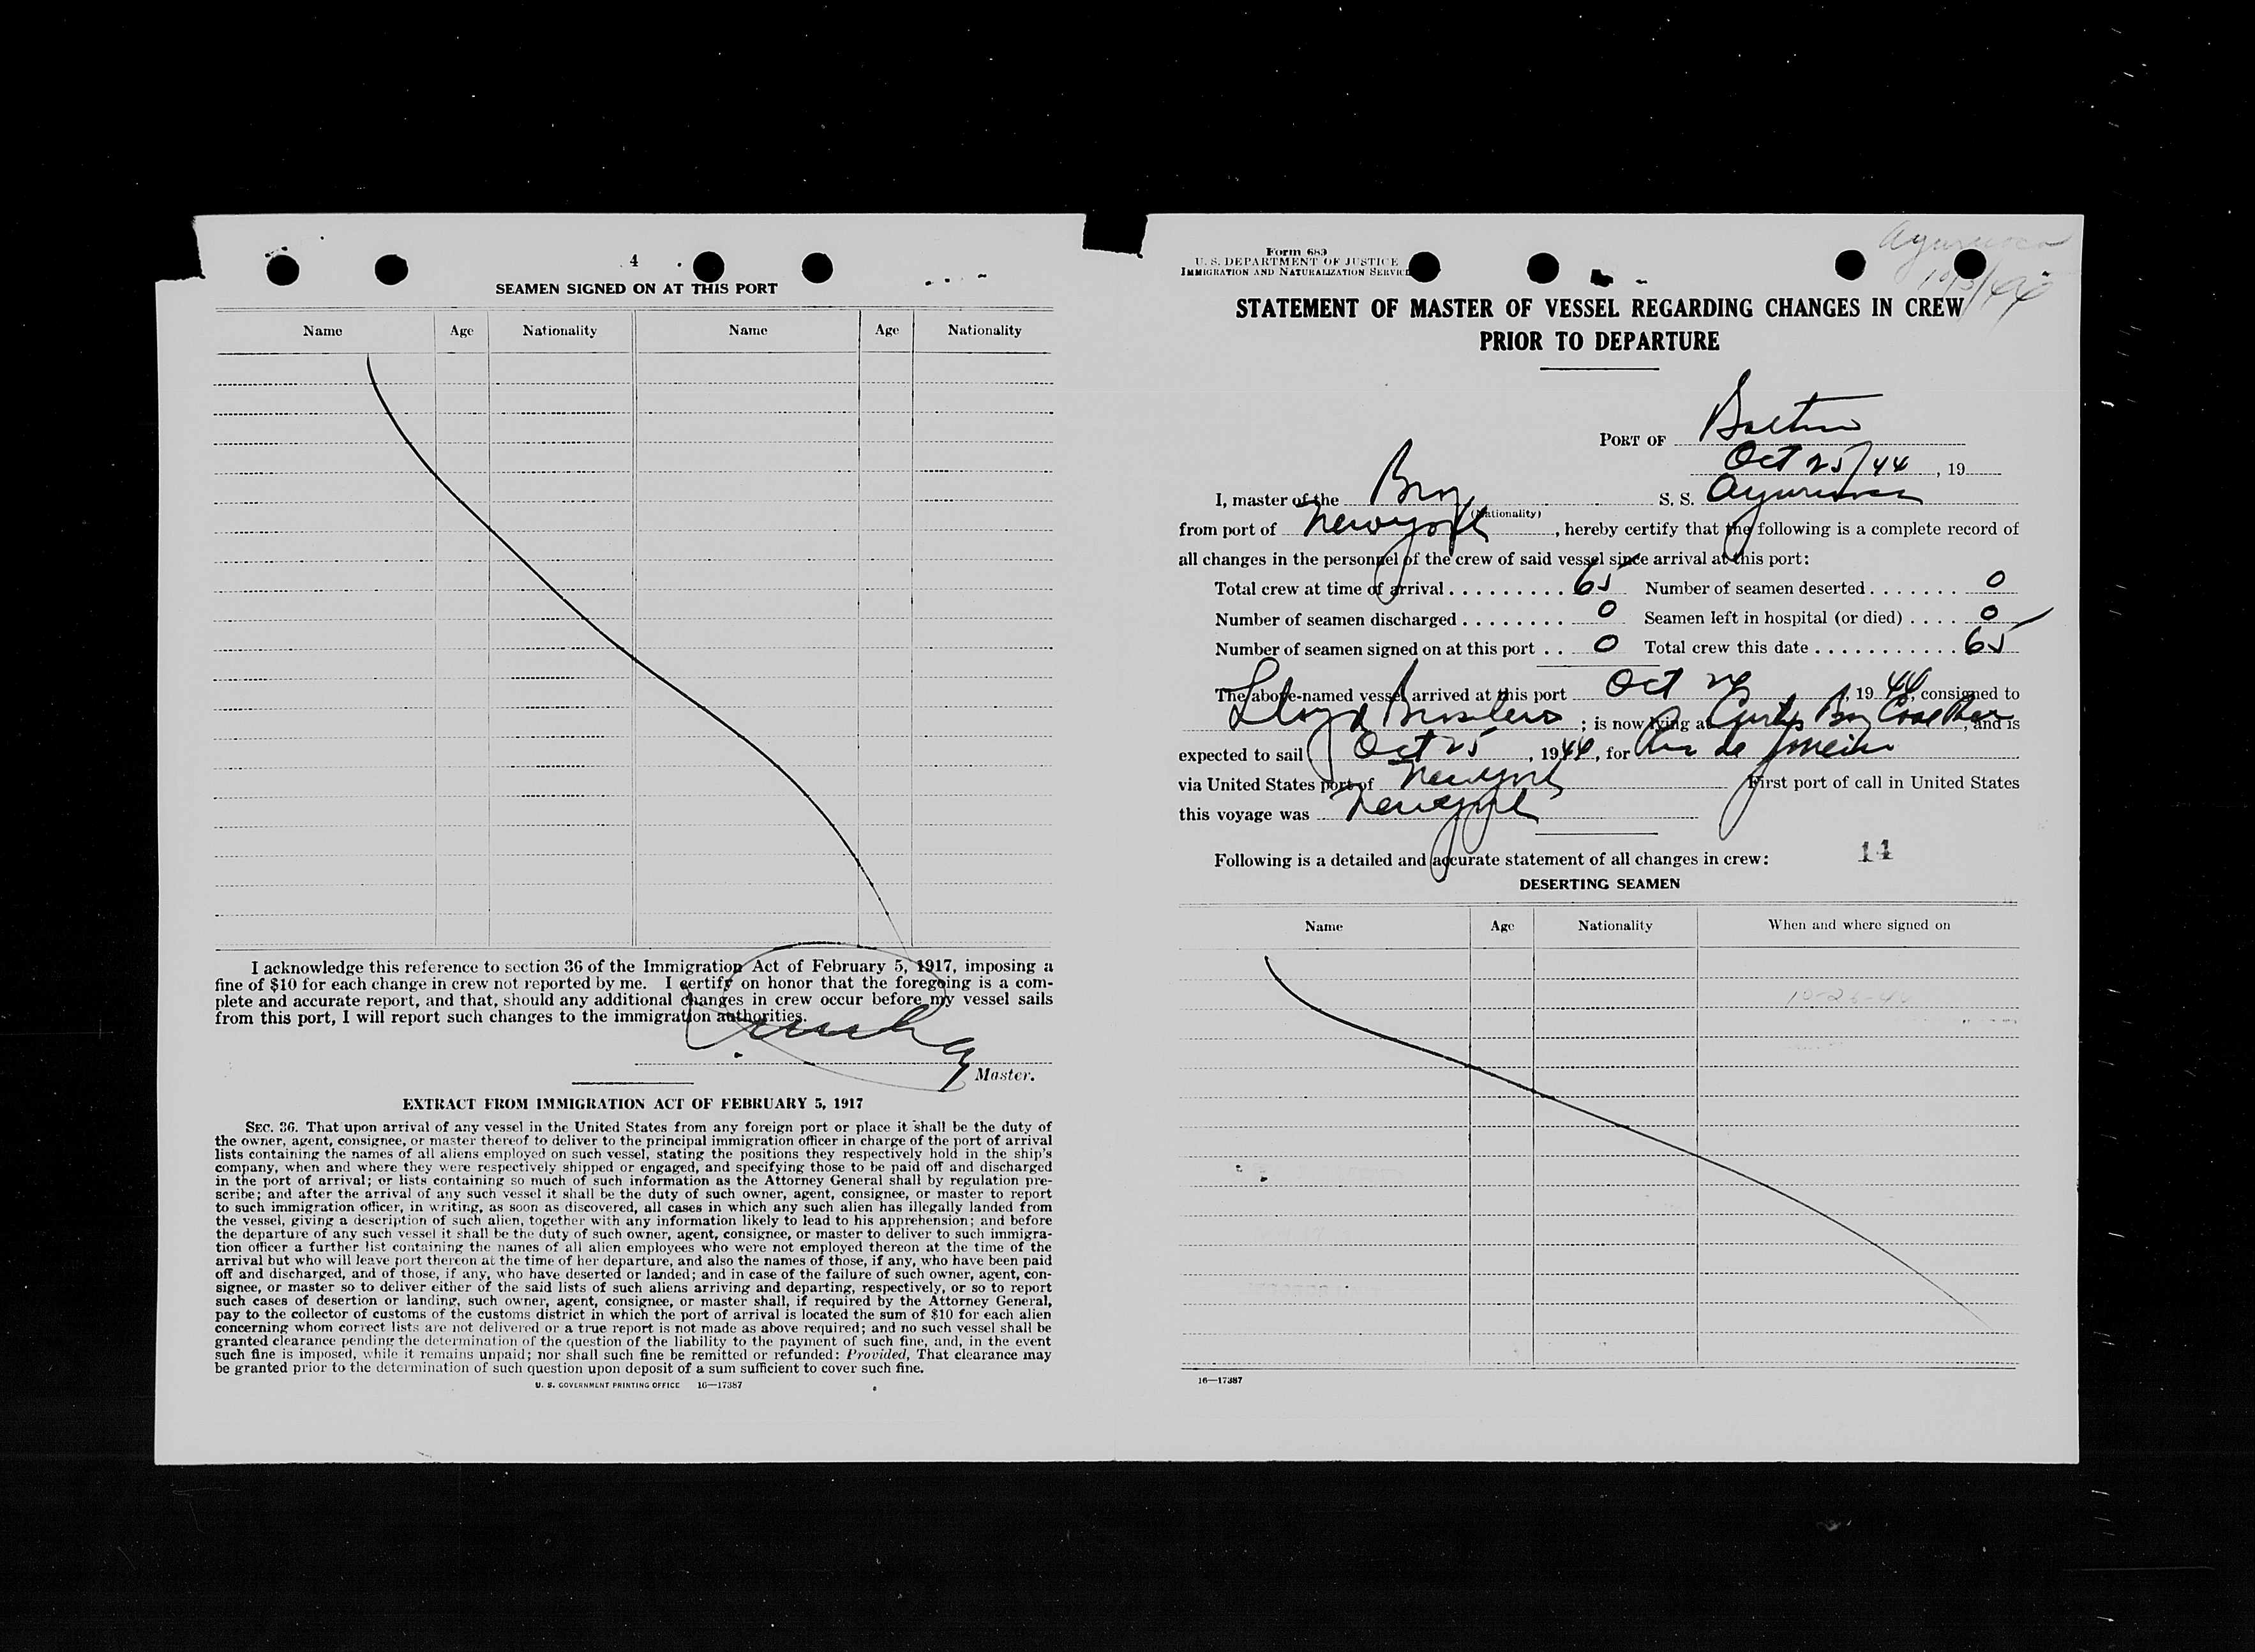 4
SEAMEN SIGNED ON AT THIS PORT
Name Age Nationality Name Age Nationality
I acknowledge this reference to section 36 of the Immigration Act of February 5, 1917, imposing a
fine of $10 for each change in crew not reported by me. I certify on honor that the foregoing is a com-
plete and accurate report, and that, should any additional changes in crew occur before my vessel sails
from this port, I will report such changes to the immigration authorities.
Master.
EXTRACT FROM IMMIGRATION ACT OF FEBRUARY 5, 1917
SEC. 36. That upon arrival of any vessel in the United States from any foreign port or place it shall be the duty of
the owner, agent, consignee, or master thereof to deliver to the principal immigration officer in charge of the port of arrival
lists containing the names of all aliens employed on such vessel, stating the positions they respectively hold in the ship's
company, when and where they were respectively shipped or engaged, and specifying those to be paid off and discharged
in the port of arrival; or lists containing so much of such information as the Attorney General shall by regulation pre-
scribe; and after the arrival of any such vessel it shall be the duty of such owner, agent, consignee, or master to report
to such immigration officer, in writing, as soon as discovered, all cases in which any such alien has illegally landed from
the vessel, giving a description of such alien, together with any information likely to lead to his apprehension; and before
the departure of any such vessel it shall be the duty of such owner, agent, consignee, or master to deliver to such immigra-
tion officer a further list containing the names of all alien employees who were not employed thereon at the time of the
arrival but who will leave port thereon at the time of her departure, and also the names of those, if any, who have been paid
off and discharged, and of those, if any, who have deserted or landed; and in case of the failure of such owner, agent, con-
signee, or master so to deliver either of the said lists of such aliens arriving and departing, respectively, or so to report
such cases of desertion or landing, such owner, agent, consignee, or master shall, if required by the Attorney General,
pay to the collector of customs of the customs district in which the port of arrival is located the sum of $10 for each alien
concerning whom correct lists are not delivered or a true report is not made as above required; and no such vessel shall be
granted clearance pending the determination of the question of the liability to the payment of such fine, and, in the event
such fine is imposed, while it remains unpaid; nor shall such fine be remitted or refunded: Provided, That clearance may
be granted prior to the determination of such question upon deposit of a sum sufficient to cover such fine.
U. S. GOVERNMENT PRINTING OFFICE 16—17387
Form 689
U. S. DEPARTMENT OF JUSTICE
IMMIGRATION AND NATURALIZATION SERVICE
Ayuruoca
STATEMENT OF MASTER OF VESSEL REGARDING CHANGES IN CREW
PRIOR TO DEPARTURE
PORT OF Balto
Oct 25/44, 19
I, master of the Braz S. S. Ayuruoca
(Nationality)
from port of New York, hereby certify that the following is a complete record of
all changes in the personnel of the crew of said vessel since arrival at this port:
Total crew at time of arrival 65 Number of seamen deserted 0
Number of seamen discharged 0 Seamen left in hospital (or died) 0
Number of seamen signed on at this port 0 Total crew this date 65
The above-named vessel arrived at this port Oct 24, 1944, consigned to
Lloyd Brasileiro; is now lying at Curtis Bay Coal Pier, and is
expected to sail Oct 25, 1944, for Rio de Janeiro
via United States port of New York First port of call in United States
this voyage was New York
Following is a detailed and accurate statement of all changes in crew: 14
DESERTING SEAMEN
Name Age Nationality When and where signed on
16—17387